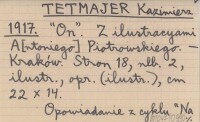 TETMAJER Kazimierz
1917. "On". Z ilustracyami
A[ntoniego] Piotrowskiego. —
Kraków. Stron 18, nlb. 2,
ilustr., opr. (ilustr.), cm
22 × 14.
Opowiadanie z cyklu "Na